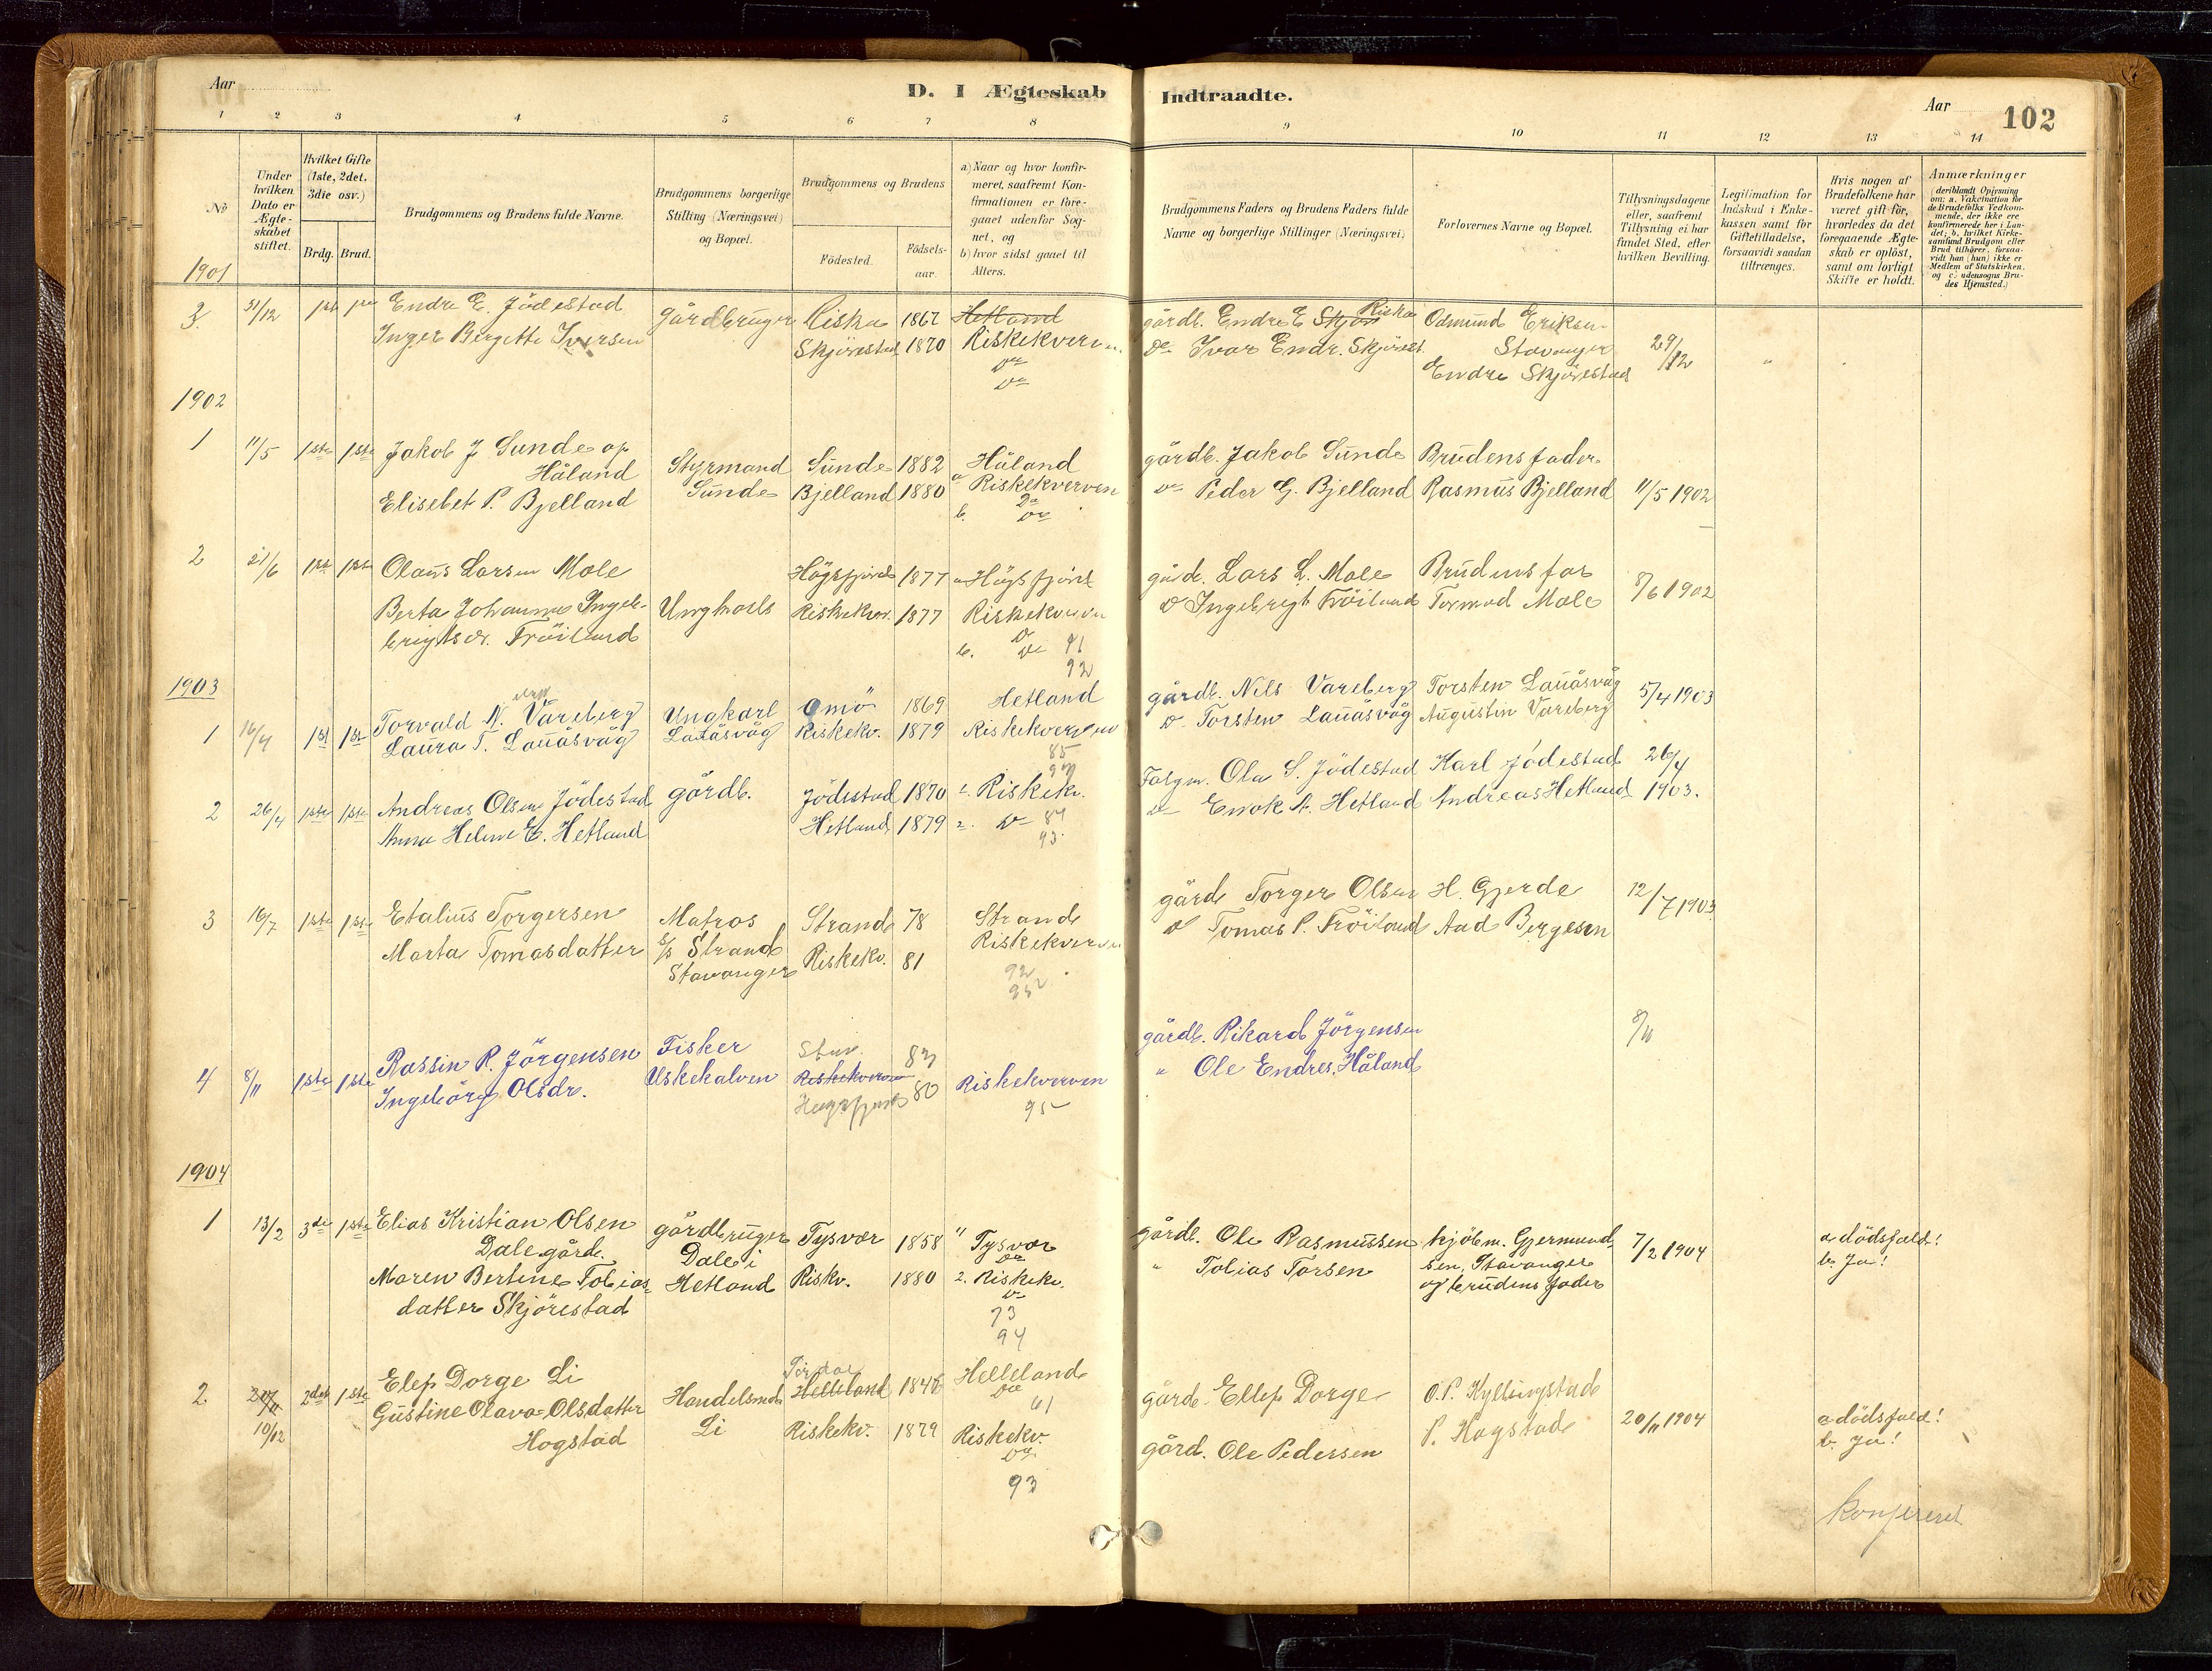 Aar
D. I Ægteskab
Indtraadte.
Aar
102
1 2 3 4 5 6 7 8 9 10 11 12 13 14
No
Under hvilken Dato er Ægteskabet stiftet.
Hvilket Gifte (1ste, 2det, 3die osv.)
Brdg. Brud.
Brudgommens og Brudens fulde Navne.
Brudgommens borgerlige Stilling (Næringsvei) og Bopæl.
Brudgommens og Brudens
Födested.
Födsels-aar.
a) Naar og hvor konfirmeret, saafremt Konfirmationen er foregaaet udenfor Sognet, og
b) hvor sidst gaaet til Alters.
Brudgommens Faders og Brudens Faders fulde Navne og borgerlige Stillinger (Næringsvei)
Forlovernes Navne og Bopæl.
Tillysningsdagene eller, saafremt Tillysning ei har fundet Sted, efter hvilken Bevilling.
Legitimation for Indskud i Enkekassen samt for Giftetilladelse, forsaavidt saadan tiltrænges.
Hvis nogen af Brudefolkene har været gift för, hvorledes da det foregaaende Ægteskab er oplöst, samt om lovligt Skifte er holdt.
Anmærkninger
(deriblandt Oplysning om: a. Vakcination for de Brudefolks Vedkommende, der ikke ere konfirmerede her i Landet; b. hvilket Kirkesamfund Brudgom eller Brud tilhører, forsaavidt han (hun) ikke er Medlem af Statskirken, og c. udensogns Brudes Hjemsted.)
1901
3. 31/12 1ste 1ste Endre E. Jödestad gårdbruger Riska 1867 Hetland gårdb. Endre E Skjør Riska Odmund Eriksen
Inger Bergitte Iversen Skjörestad 1870 Riskekverven do Ivar Endr. Skjörest. Stavanger 29/12 "
do Endre Skjörestad
do
1902
1 11/5 1ste 1ste Jakob J Sunde op Styrmand Sunde 1882 Håland gårdb. Jakob Sunde Brudens fader
Håland Sunde Bjelland 1880 a Riskekverven do Peder G. Bjelland Rasmus Bjelland 11/5 1902
Elisebet P. Bjelland do
b. do
2 21/6 1ste 1ste Olaus Larsen Mole Högsfjord 1877 a Högsfjord gårdb. Lars L. Mole Brudens far 8/6 1902
Berta Johanne Ingeb- Ungkarls Riskekverv. 1877 Riskekverven do Ingebrigt Fröiland Tormod Mole
brigtsdr. Fröiland do
b. do 91
92
1903
1 16/4 1ste 1ste Torvald N. Vareberg Ungkarl Omö 1869 Hetland gårdb. Nils Vareberg Torsten Lauåsvåg 5/4 1903
Laura T. Lauåsvåg Lauåsvåg Riskekv. 1879 Riskekverven do Torsten Lauåsvåg Augustin Vareberg
85
2 26/4 1ste 1ste Andreas Olsen Jödestad gårdb. Jödestad 1870 Riskekv. Ola S. Jödestad Karl Jödestad 26/4
Anna Helene E. Hetland Hetland 1879 do 87 do Enok A. Hetland Andreas Hetland 1903.
93
3 16/7 1ste 1ste Etalius Torgersen Matros Strand 78 Strand gårdb Torger Olsen H. Gjerde 12/7 1903
Marta Tomasdatter S/s Strand Riskekv. 81 Riskekverven do Tomas P. Fröiland Aad Bergesen
Stavanger 92
95
4 8/11 1ste 1ste Rassin R. Jörgensen Fisker Stav. 83 gårdb. Rikard Jörgensen 8/11
Ingebörg Olsdr. Uskekalven Riskekverven 80 Riskekverven " Ole Endres. Håland
Høgsfjord 95
1904
1 13/2 3de 1ste Elias Kristian Olsen gårdbruger Tysvær 1858 " Tysvær gårdb. Ole Rasmussen kjöbm. Gjermund- 7/2 1904 a dödsfald!
Dale gårdb. Dale i do " Tobias Tarsen sen, Stavanger b. Ja!
Maren Bertine Tobias- Hetland Riskv. 1880 2. Riskekv. og brudens fader
datter Skjörestad do
73
94
2. 20/11 2det 1ste Elef Dorge Li Handelsmd. Helleland 1846 Helleland gårdb. Ellef Dorge O. P. Kyllingstad
10/12 Gustine Olava Olsdatter Li do 61
Hogstad Riskekv. 1879 Riskekv. gård. Ole Pedersen P. Hogstad 20/11 1904 a dödsfald!
do b. Ja!
93
Konfereret